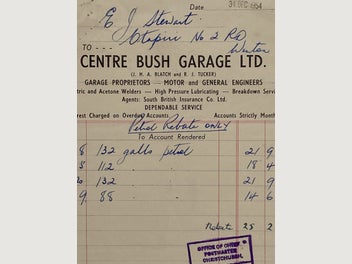 Date 31 DEC 1954
E J Stewart
Otapiri No 2 RD
TO Winton
CENTRE BUSH GARAGE LTD.
(J. H. A. BLATCH and R. J. TUCKER)
GARAGE PROPRIETORS — MOTOR and GENERAL ENGINEERS
tric and Acetone Welders — High Pressure Lubricating — Breakdown Servi
Agents: South British Insurance Co. Ltd.
DEPENDABLE SERVICE
rest Charged on Overdue Accounts Accounts Strictly Month
Petrol Rebate only
To Account Rendered
8 132 galls petrol 21 9
8 112 18 4
26 132 21 9
9 88 14 6
Rebate 25 2
OFFICE OF CHIEF
POSTMASTER
CHRISTCHURCH.